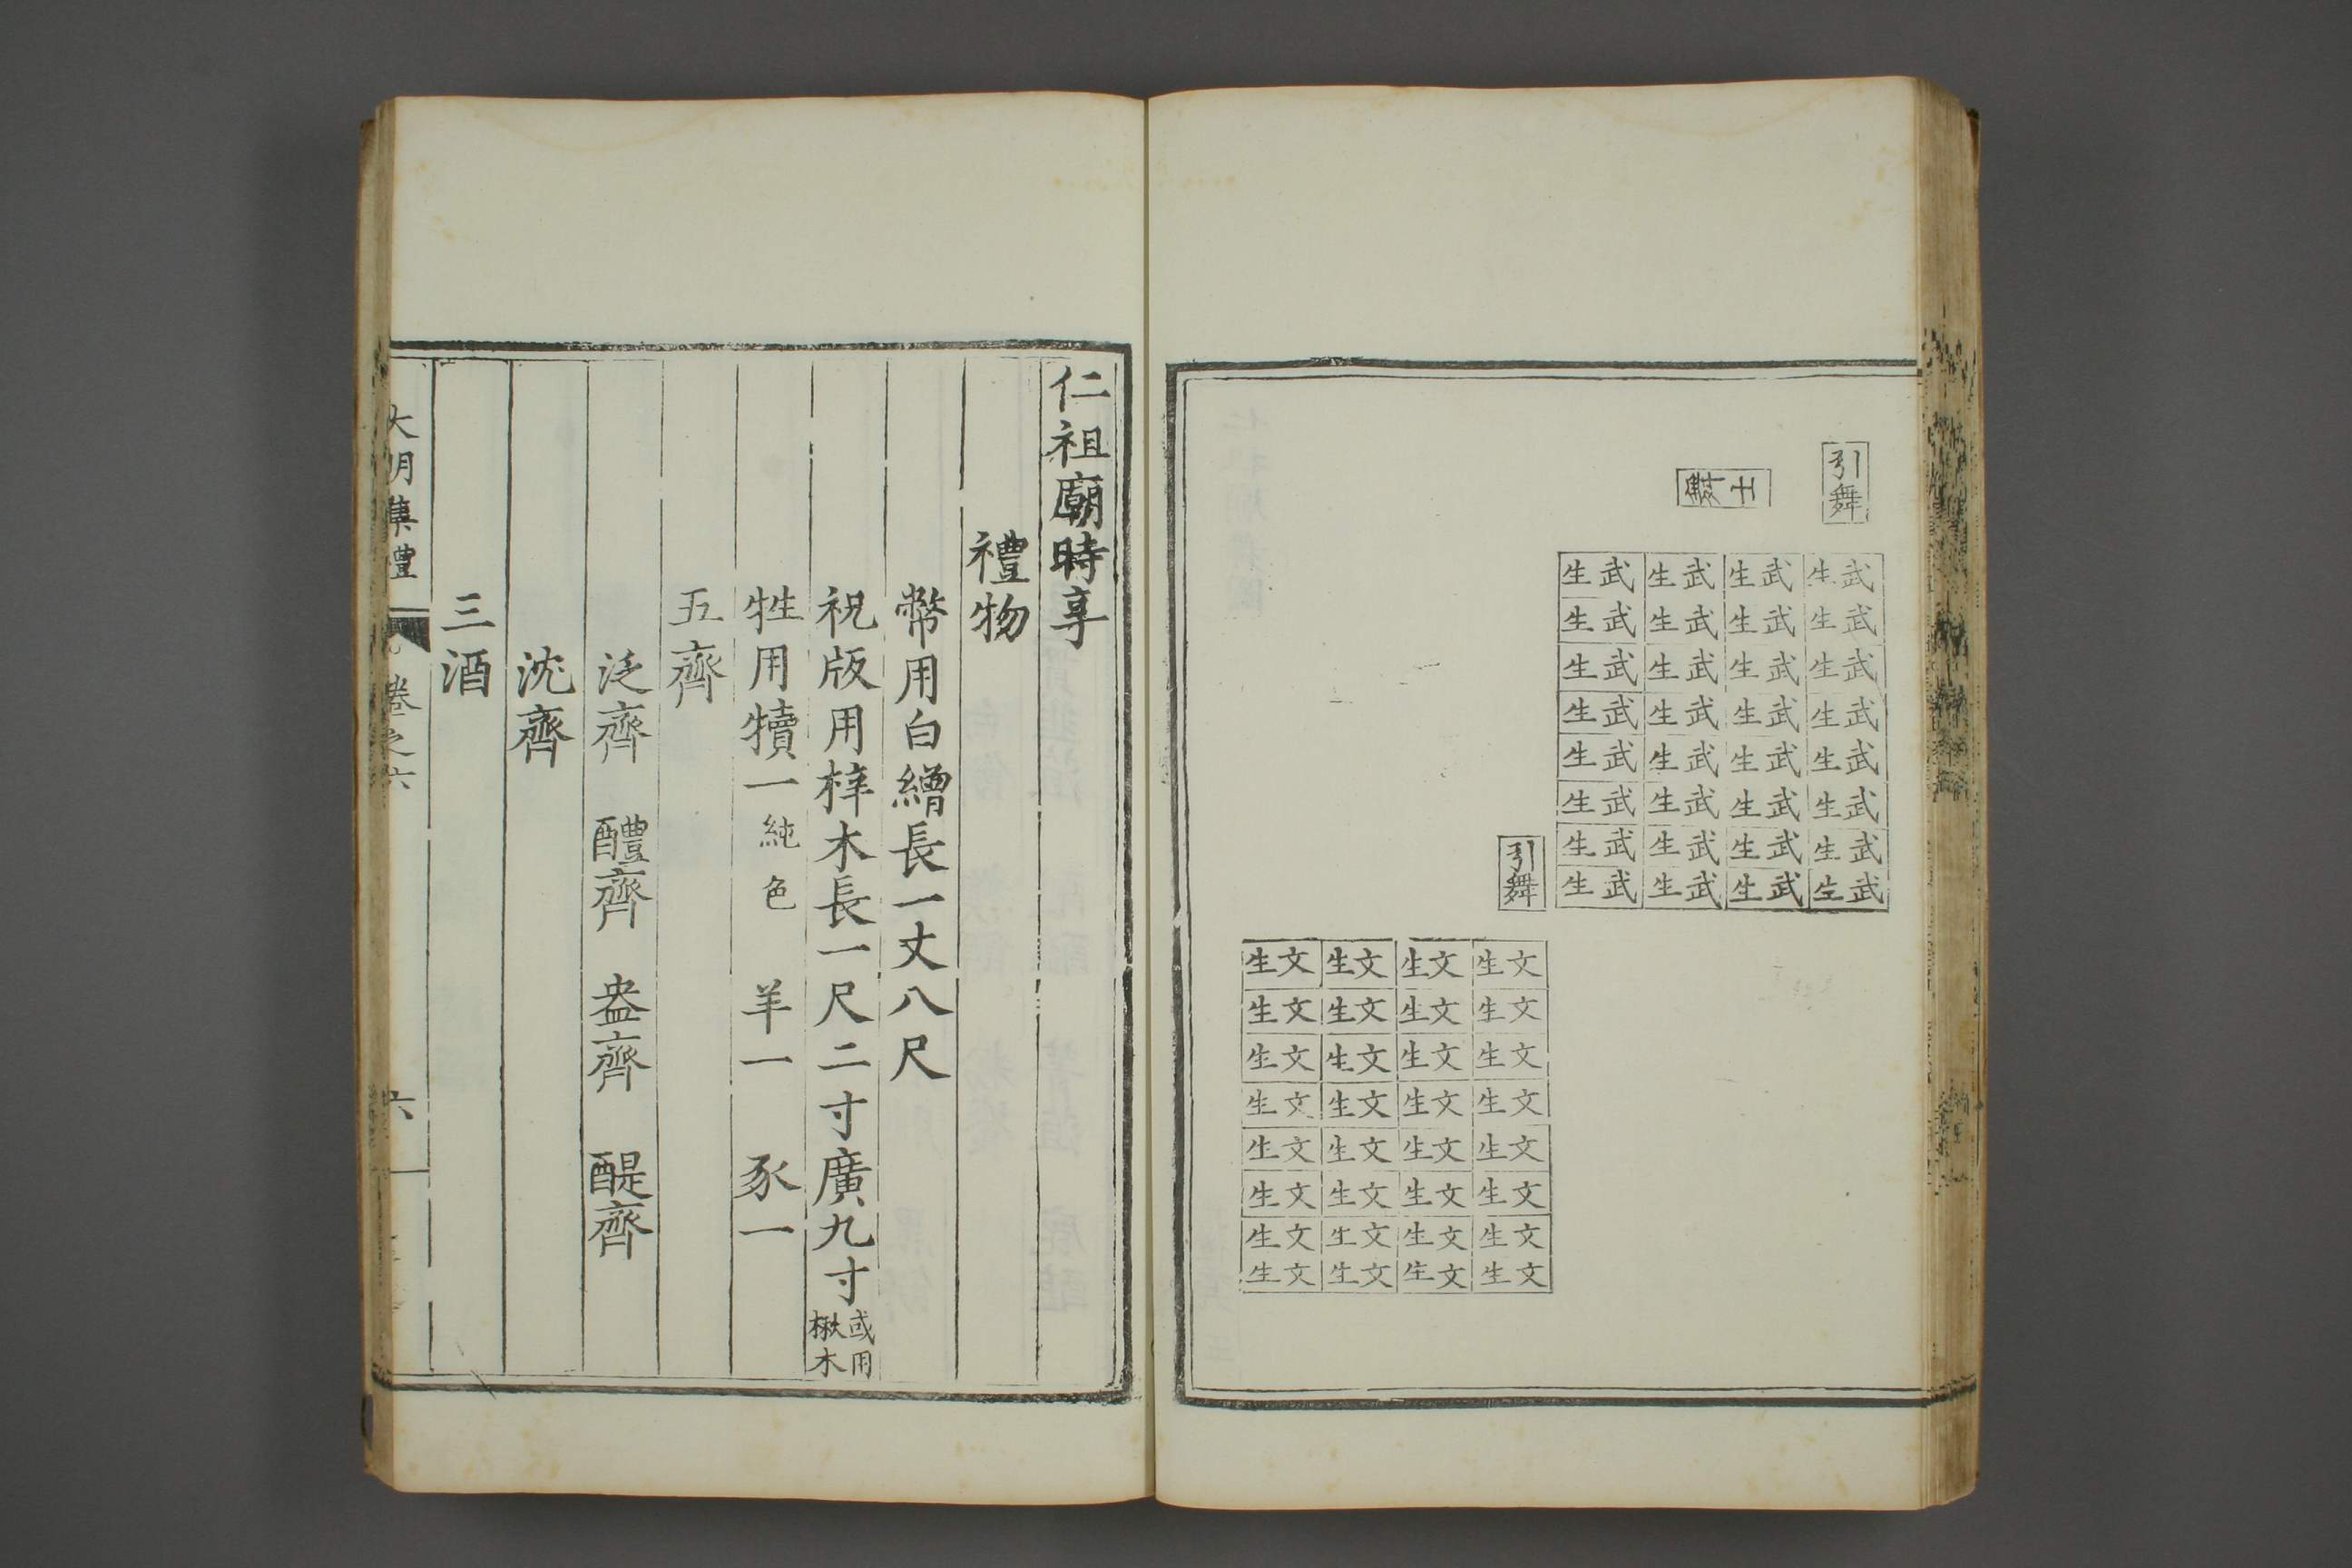 引舞
武生 武生 武生 武生
武生 武生 武生 武生
武生 武生 武生 武生
武生 武生 武生 武生
武生 武生 武生 武生
武生 武生 武生 武生
武生 武生 武生 武生
武生 武生 武生 武生
引舞
文生 文生 文生 文生
文生 文生 文生 文生
文生 文生 文生 文生
文生 文生 文生 文生
文生 文生 文生 文生
文生 文生 文生 文生
文生 文生 文生 文生
文生 文生 文生 文生
仁祖廟時享
禮物
幣用白繒長一丈八尺
祝版用梓木長一尺二寸廣九寸或用楸木
牲用犢一純色 羊一 豕一
五齊
泛齊 醴齊 盎齊 醍齊
沈齊
三酒
大明集禮 卷之六 六